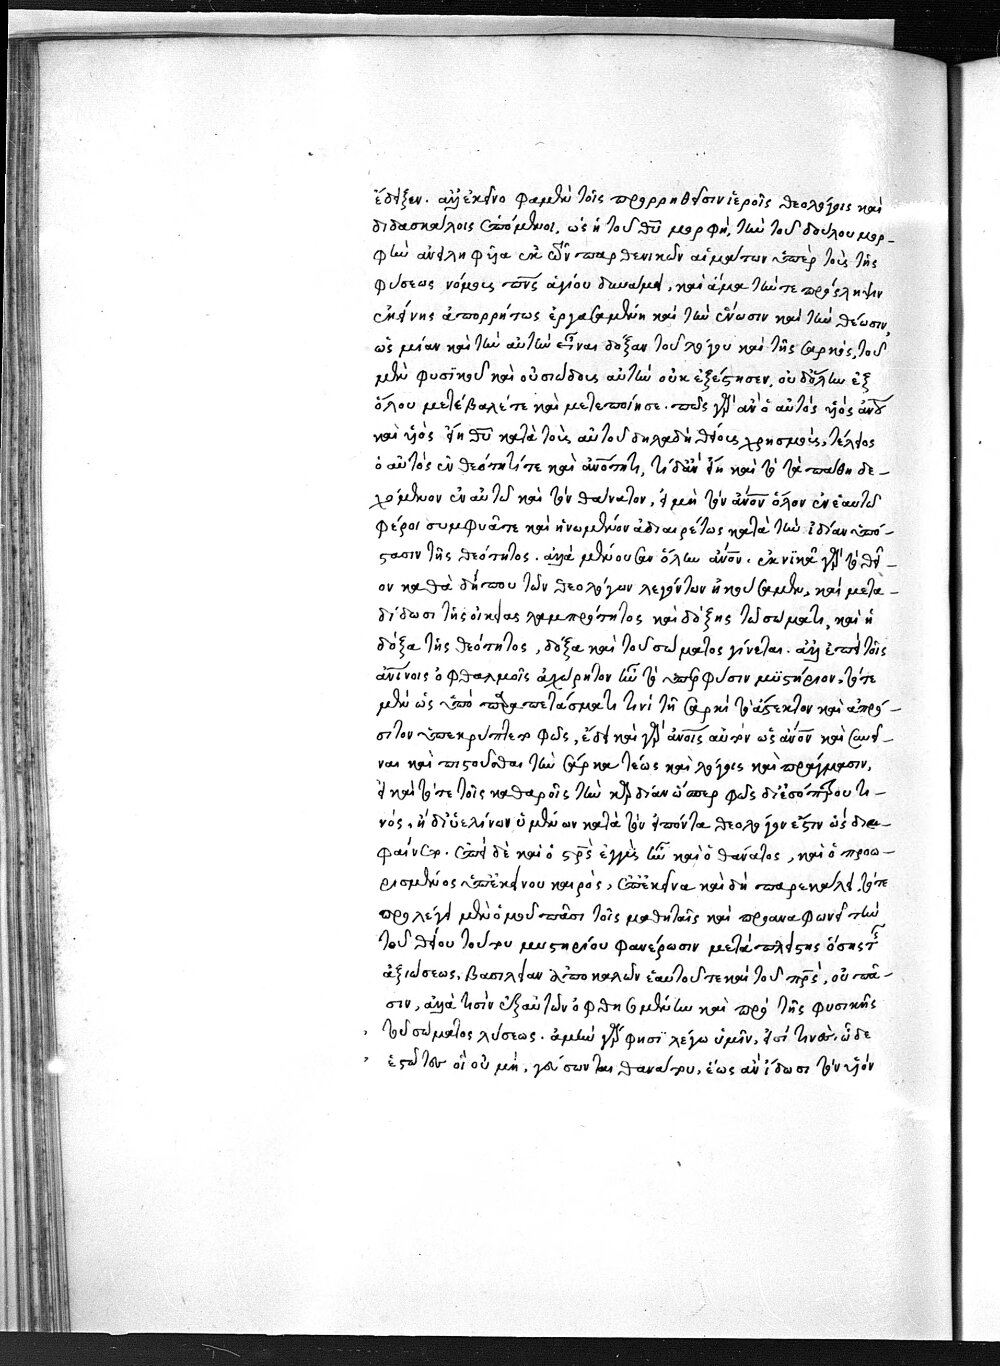 ἔδειξεν. ἀλλ' ἐκεῖνο φαμὲν τοῖς προρρηθεῖσιν ἱεροῖς θεολόγοις καὶ
διδασκάλοις ἑπόμενοι, ὡς ἡ τοῦ θυ μορφὴ, τὴν τοῦ δούλου μορ-
φὴν ἀνειληφυῖα ἐκ τῶν παρθενικῶν αἱμάτων ὑπὲρ τοὺς τῆς
φύσεως νόμους πνς ἁγίου δυνάμει, καὶ ἅμα τήν τε πρόσληψιν
ἐκείνης ἀπορρήτως ἐργασαμένη καὶ τὴν ἕνωσιν καὶ τὴν θέωσιν,
ὡς μίαν καὶ τὴν αὐτὴν εἶναι δόξαν τοῦ λόγου καὶ τῆς σαρκὸς, τοῦ
μὲν φυσικοῦ καὶ οὐσιώδους αὐτὴν οὐκ ἐξέστησεν, οὐδ' ὅλην ἐξ
ὅλου μετέβαλέ τε καὶ μετεποίησε. πῶς γὰρ ἂν ὁ αὐτὸς υἱὸς ἀνου
καὶ υἱὸς εἴη θυ κατὰ τοὺς αὐτοῦ δηλαδὴ θείους χρησμοὺς, τέλειος
ὁ αὐτὸς ἐν θεότητί τε καὶ ἀνοτητι, τί δ' ἂν εἴη καὶ τὸ τὰ πάθη δε-
χόμενον ἐν αὐτῷ καὶ τὸν θάνατον, εἰ μὴ τὸν ἀνον ὅλον ἐν ἑαυτῷ
φέροι συμφυᾶ τε καὶ ἡνωμένον ἀδιαιρέτως κατὰ τὴν ἰδίαν ὑπό-
στασιν τῆς θεότητος. ἀλλὰ μένουσαν ὅλην ἀνον. ἐκνικᾶ γὰρ τὸ θεῖ-
ον καθὰ δήπου τῶν θεολόγων λεγόντων ἠκούσαμεν, καὶ μετα-
δίδωσι τῆς οἰκείας λαμπρότητος καὶ δόξης τῷ σώματι, καὶ ἡ
δόξα τῆς θεότητος, δόξα καὶ τοῦ σώματος γίνεται. ἀλλ' ἐπεὶ τοῖς
ἀνίνοις ὀφθαλμοῖς ἀχώρητον ἦν τὸ ὑπὲρ φύσιν μυστήριον, τότε
μὲν ὡς ὑπὸ παραπετάσματί τινι τῇ σαρκὶ τὸ ἄστεκτον καὶ ἀπρό-
σιτον ὑπεκρύπτετο φῶς, ἔδει καὶ γὰρ ἀνοις αὐτὸν ὡς ἀνον καὶ φανῆ-
ναι καὶ πιστοῦσθαι τὴν σάρκα τέως καὶ λόγοις καὶ πράγμασιν,
εἰ καὶ τότε τοῖς καθαροῖς τὴν καρδίαν ὥσπερ φῶς δι' ἐσόπτρου τι-
νός, ἢ δι' ὑελίνων ὑμένων κατὰ τὸν εἰπόντα θεολόγον ἔστιν ὡς δια-
φαίνετο. ἐπεὶ δὲ καὶ ὁ στρς ἐγγὺς ἦν καὶ ὁ θάνατος, καὶ ὁ προω-
ρισμένος ὑπ' ἐκείνου καιρὸς, ἐπ' ἐκεῖνα καὶ δὴ παρεκάλει. τότε
προλέγει μὲν ὁμοῦ πᾶσι τοῖς μαθηταῖς καὶ προαναφωνεῖ τὴν
τοῦ θείου τούτου μυστηρίου φανέρωσιν μετὰ πλείστης ὅσης τῆς
ἀξιώσεως, βασιλείαν ἀποκαλῶν ἑαυτοῦ τε καὶ τοῦ πρς, οὐ πᾶ-
σιν, ἀλλὰ τισὶν ἐξ αὐτῶν ὀφθησομένην καὶ πρὸ τῆς φυσικῆς
τοῦ σώματος λύσεως. ἀμὴν γάρ φησι λέγω ὑμῖν, εἰσί τινες ὧδε
ἑστῶτες οἳ οὐ μὴ, γεύσωνται θανάτου, ἕως ἂν ἴδωσι τὸν υἱὸν